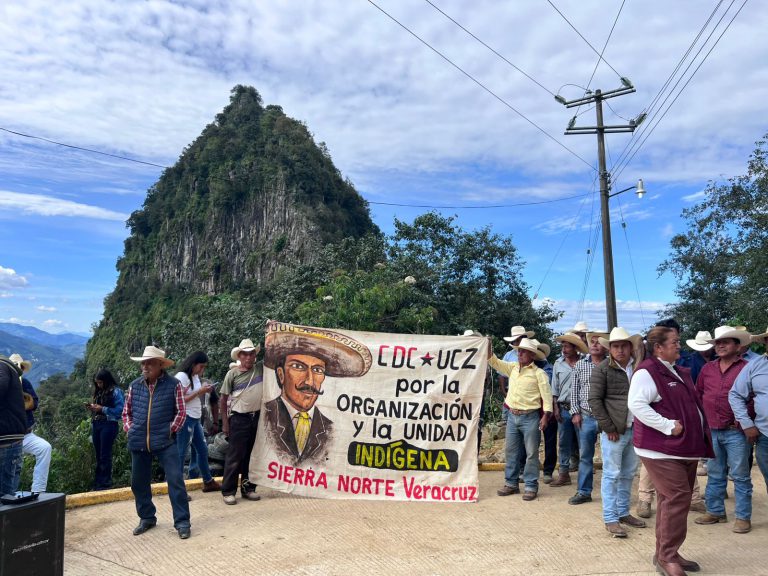 CDC★UCZ
por la
ORGANIZACIÓN
y la UNIDAD
INDÍGENA
SIERRA NORTE Veracruz